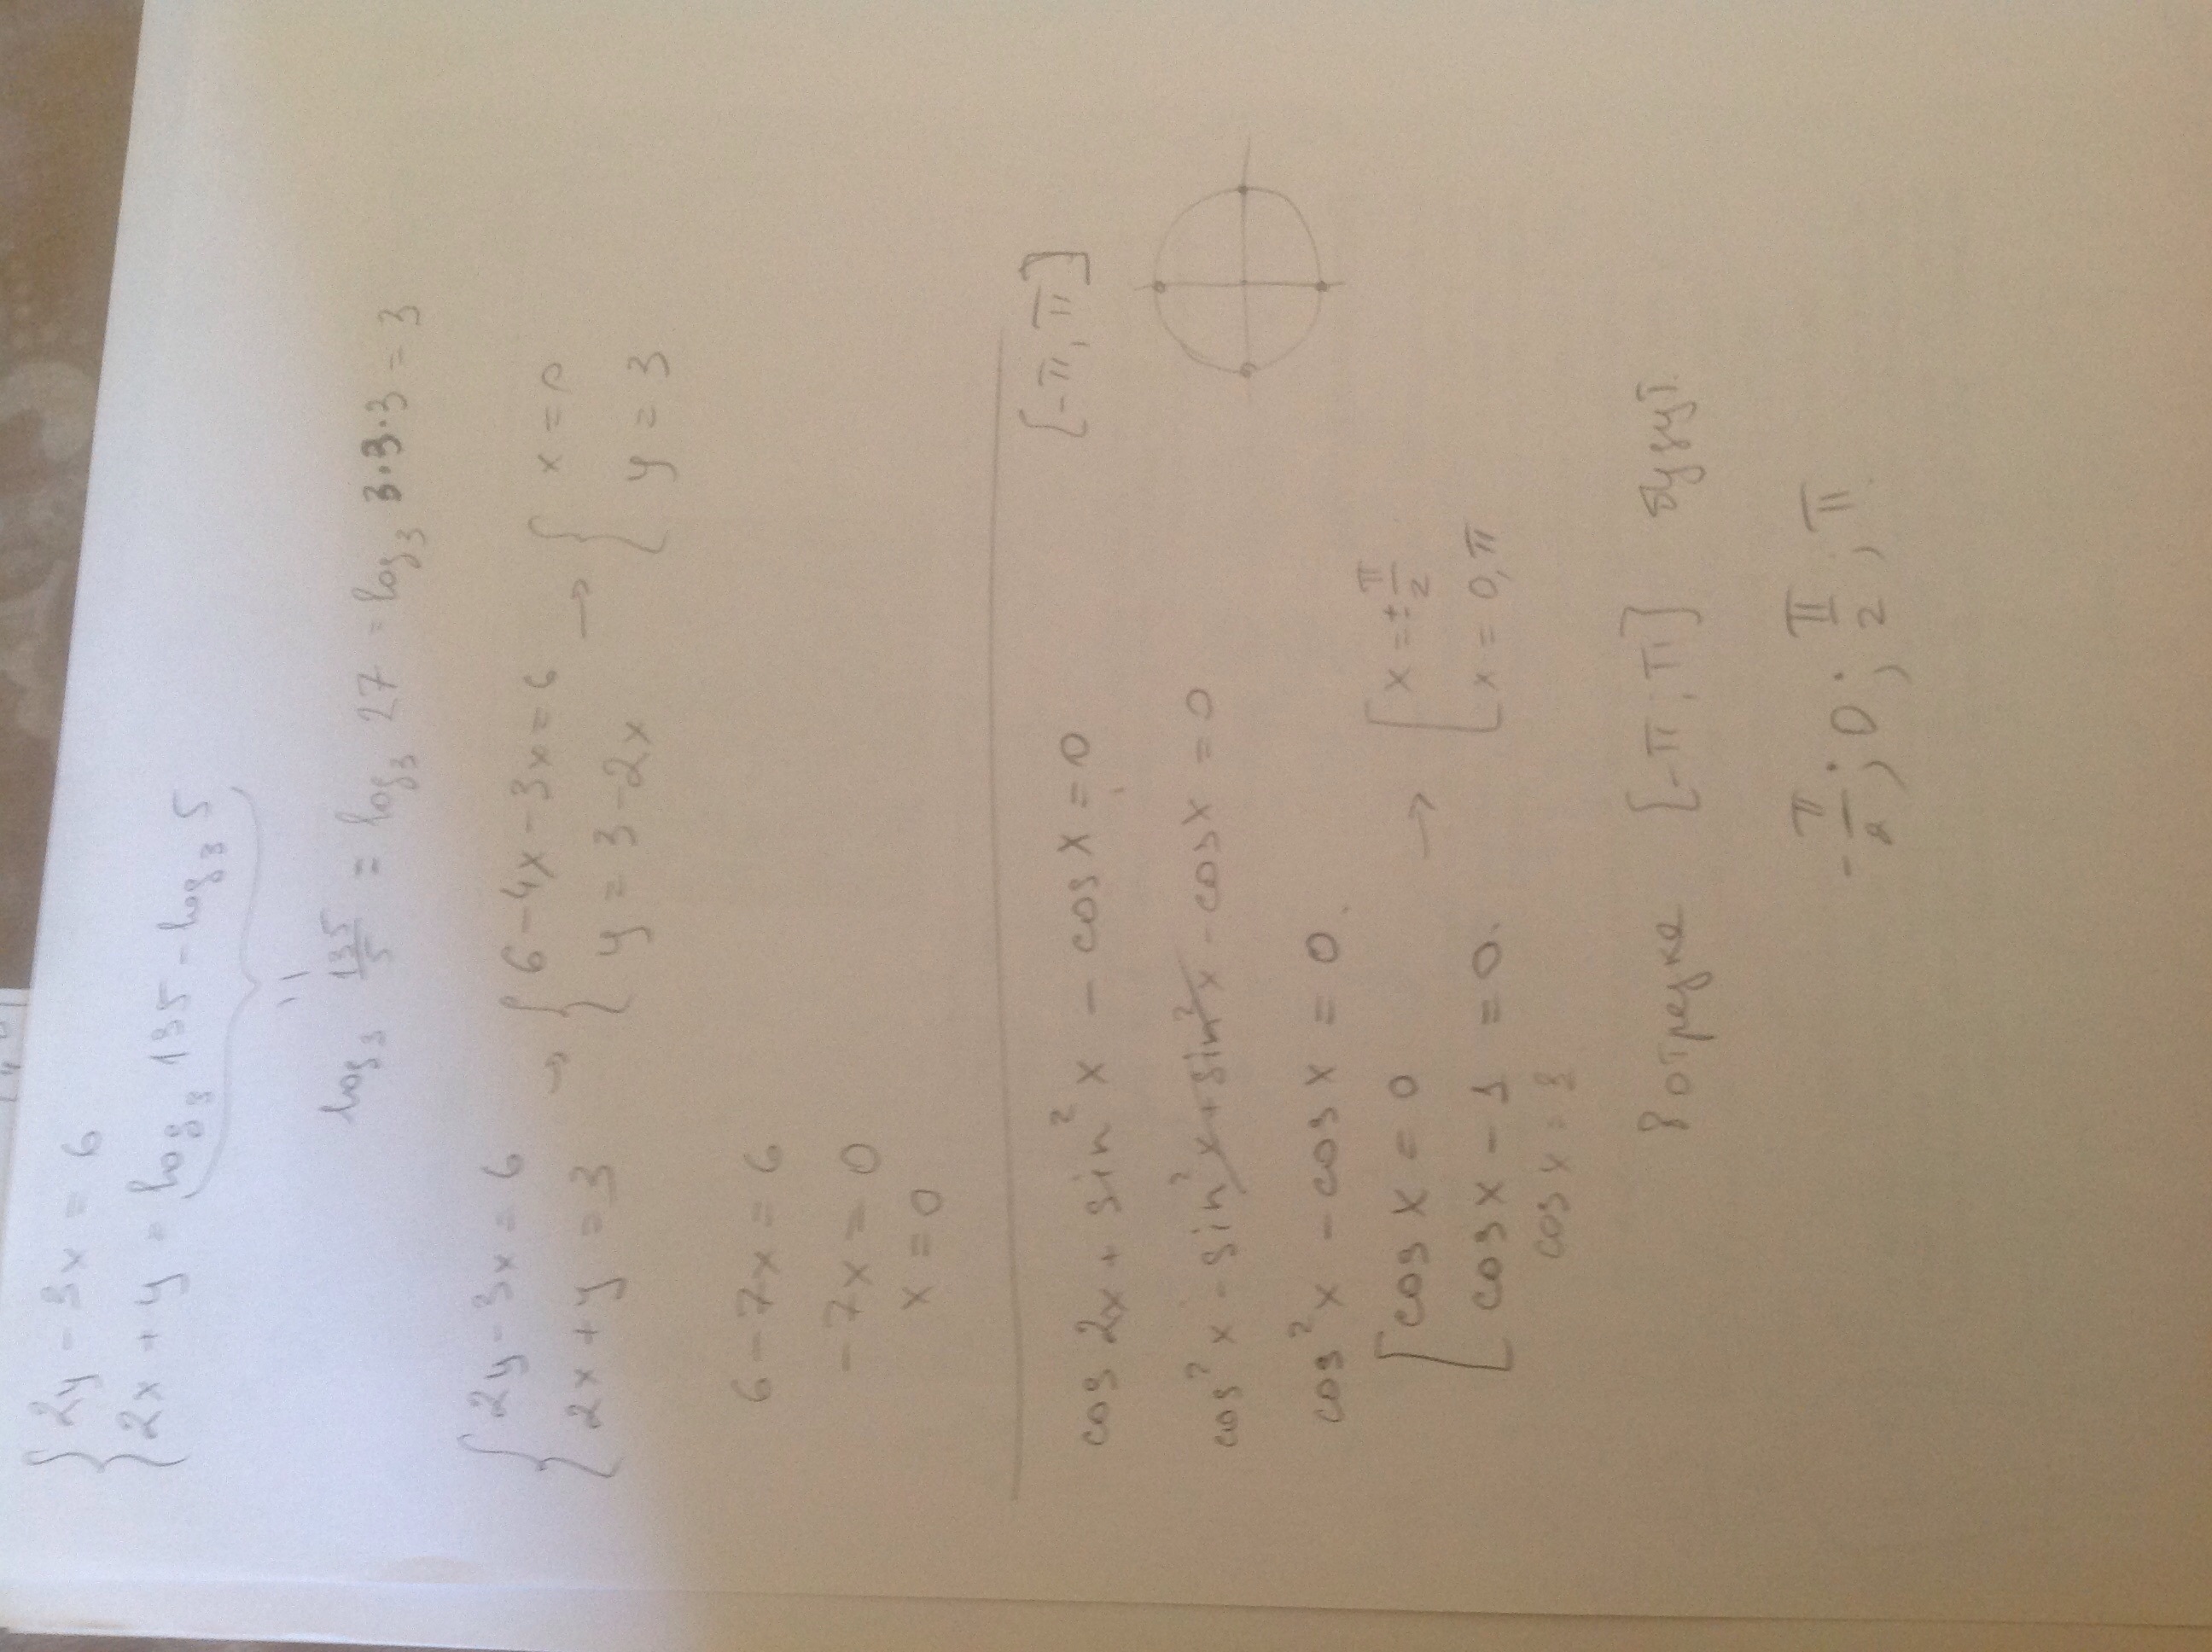 { 2y - 3x = 6
{ 2x + y = log₃ 135 - log₃ 5
log₃ 135/5 = log₃ 27 = log₃ 3·3·3 = 3
{ 2y - 3x = 6 → { 6 - 4x - 3x = 6 → { x = 0
{ 2x + y = 3 { y = 3 - 2x { y = 3
6 - 7x = 6
-7x = 0
x = 0
cos 2x + sin² x - cos x = 0 [-π, π]
cos² x - sin² x + sin² x - cos x = 0
cos² x - cos x = 0.
[ cos x = 0 → [ x = ± π/2
[ cos x - 1 = 0. [ x = 0, π
cos x =
В отрезке [-π; π] будут.
- π/2; 0; π/2; π.